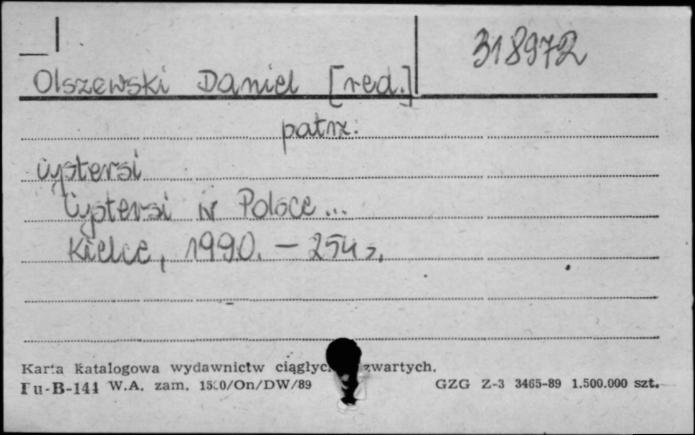 318972
Olszewski Daniel [red.]
patrz:
cystersi
Cystersi w Polsce...
Kielce, 1990. – 254 s.
Karta katalogowa wydawnictw ciągłyc zwartych.
Pu-B-144 W.A. zam. /On/DW/89 GZG Z-3 3465-89 1.500.000 szt.